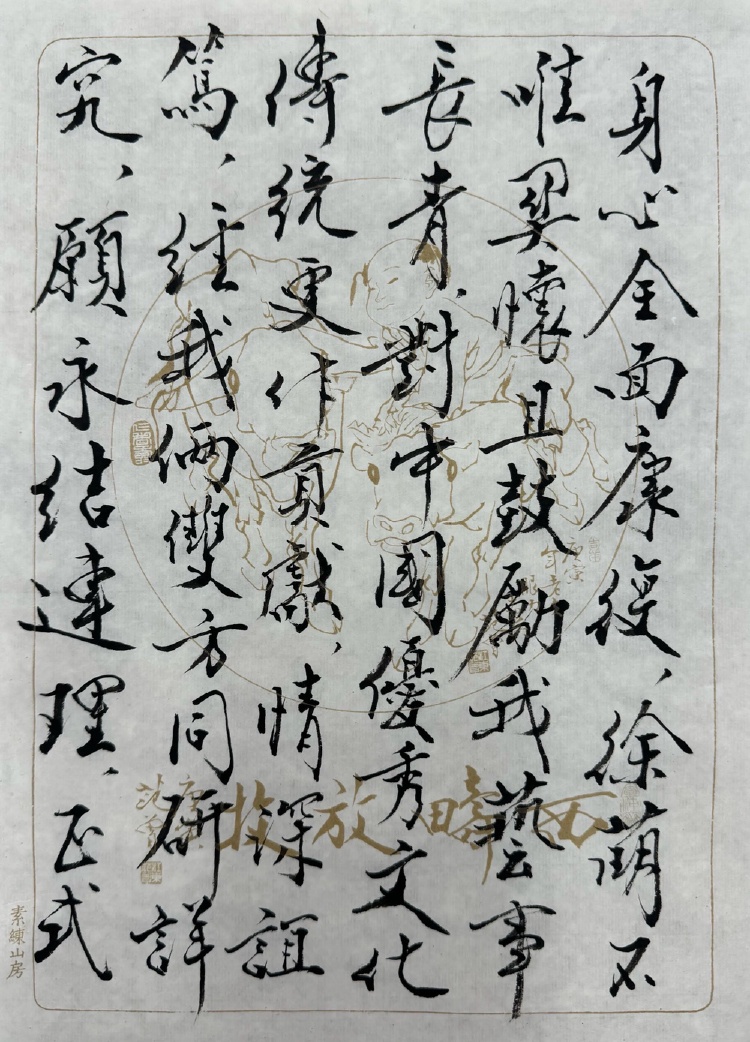 身心全面康復，徐萌不
唯異懷且鼓勵我藝事
長青，對中國優秀文化
傳統更作貢獻，情深誼
篤，經我倆雙方同研詳
究，願永結連理，正式
西疇放牧
庚寅
范曾
素練山房